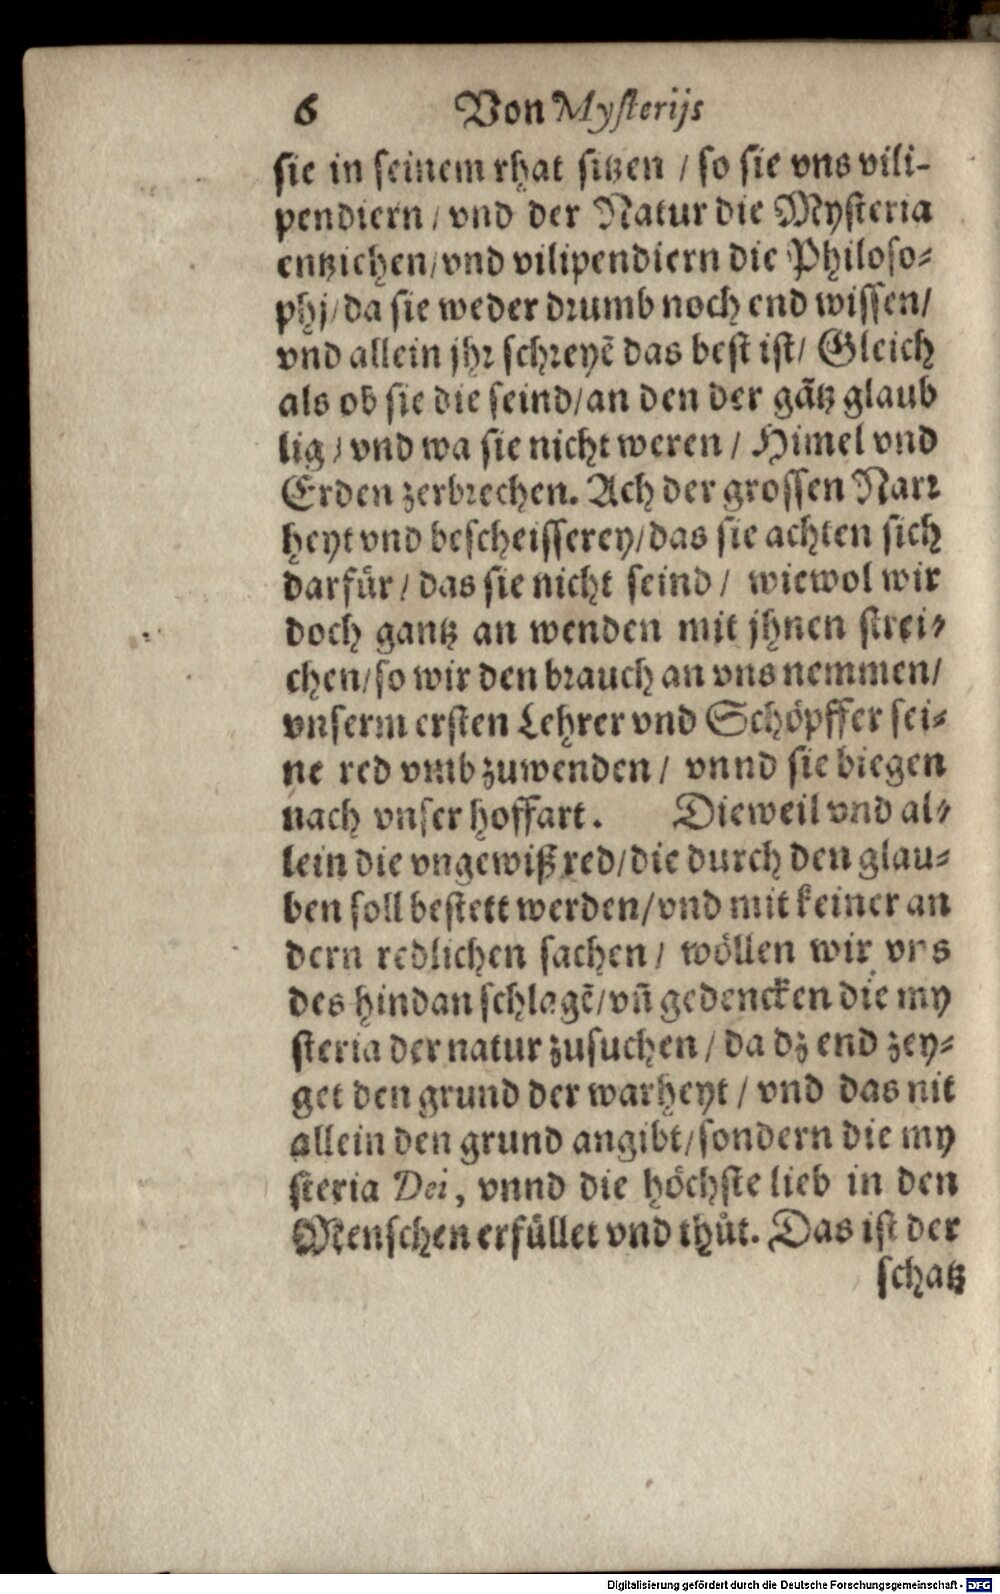 6 Von Mysterijs
sie in seinem rhat sitzen / so sie vns vili-
pendiern / vnd der Natur die Mysteria
entziehen / vnd vilipendiern die Philoso-
phj / da sie weder drumb noch end wissen /
vnd allein jhr schreyẽ das best ist / Gleich
als ob sie die seind / an den der gãtz glaub
lig / vnd wa sie nicht weren / Himel vnd
Erden zerbrechen. Ach der grossen Narr
heyt vnd bescheisserey / das sie achten sich
darfür / das sie nicht seind / wiewol wir
doch gantz an wenden mit jhnen strei-
chen / so wir den brauch an vns nemmen /
vnserm ersten Lehrer vnd Schöpffer sei-
ne red vmbzuwenden / vnnd sie biegen
nach vnser hoffart. Dieweil vnd al-
lein die vngewiß red / die durch den glau-
ben soll bestett werden / vnd mit keiner an
dern redlichen sachen / wöllen wir vns
des hindan schlagẽ / vñ gedencken die my
steria der natur zusuchen / da dz end zey-
get den grund der warheyt / vnd das nit
allein den grund angibt / sondern die my
steria Dei, vnnd die höchste lieb in den
Menschen erfüllet vnd thůt. Das ist der
schatz
Digitalisierung gefördert durch die Deutsche Forschungsgemeinschaft - DFG